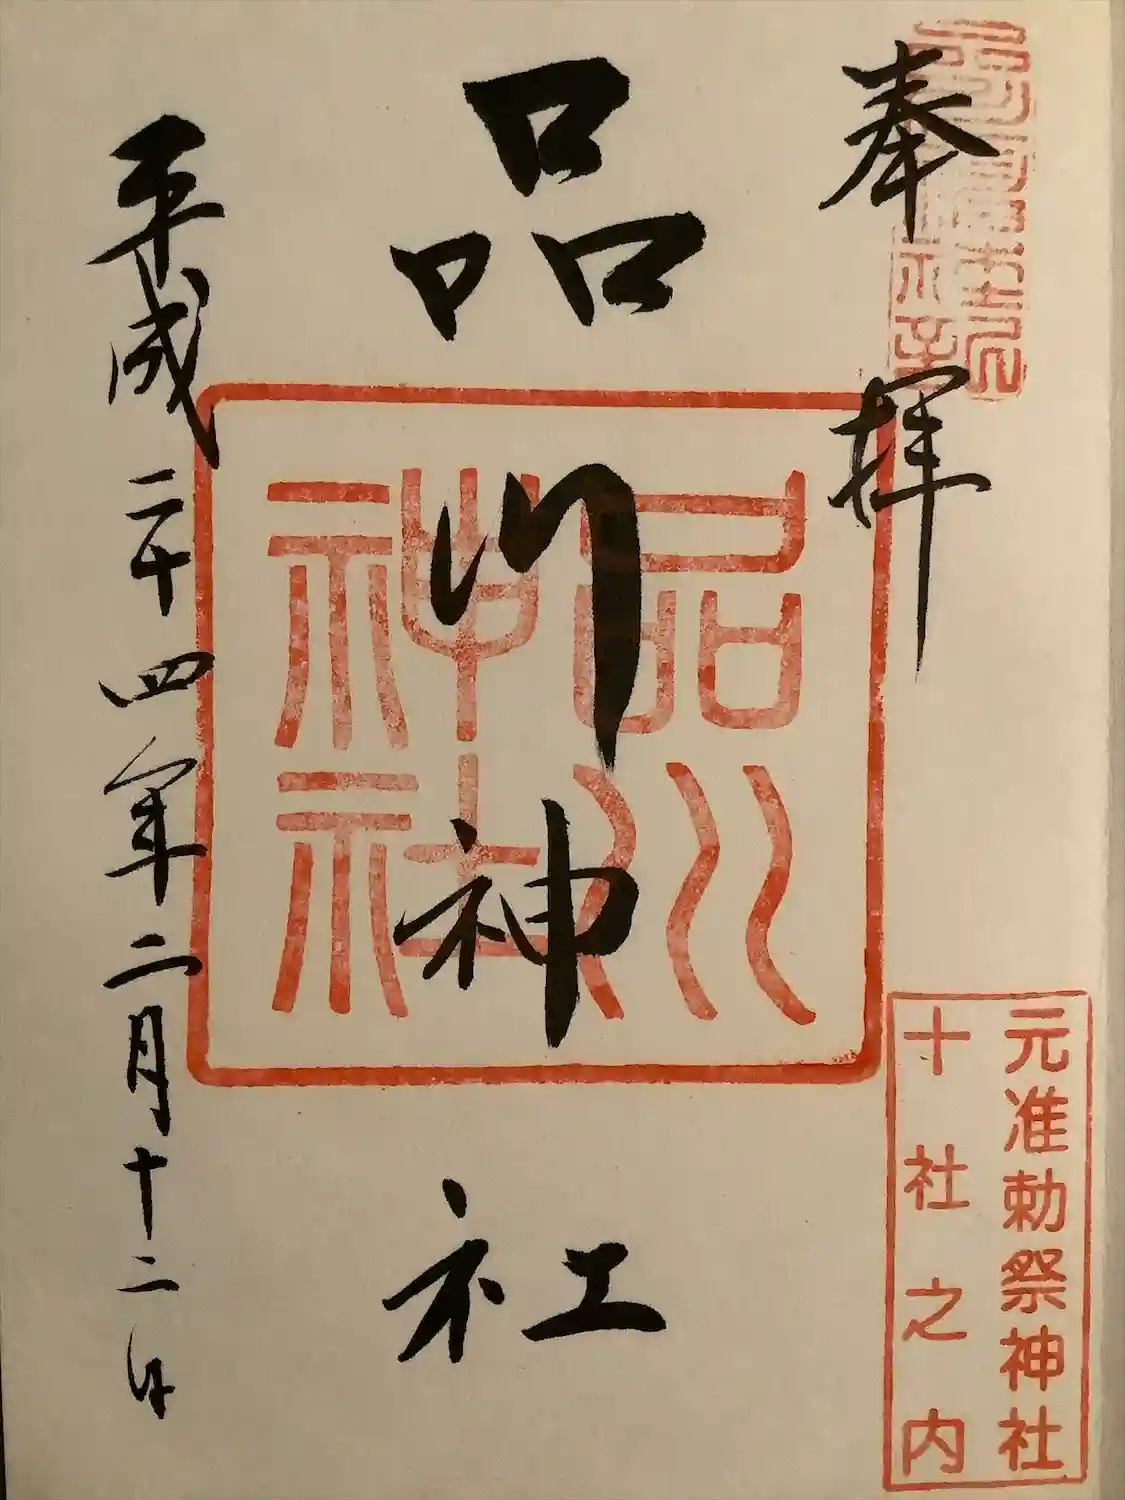 奉拝
元准勅祭神社
十社之内
品川神社
品川
神社
平成二十四年二月十二日